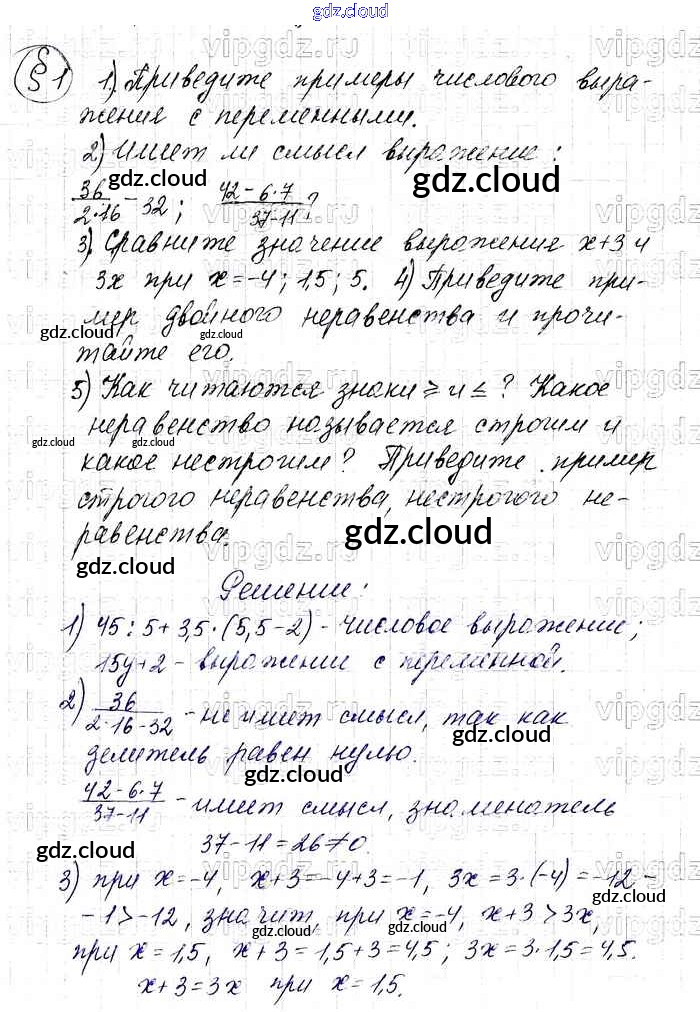 gdz.cloud
§1 1) Приведите примеры числового выра-
жения с переменными.
2) Имеет ли смысл выражение:
36/2·16 - 32; 42-6·7/37-11?
3) Сравните значение выражения x+3 и
3x при x=-4; 1,5; 5. 4) Приведите при-
мер двойного неравенства и прочи-
тайте его.
5) Как читаются знаки ≥ и ≤? Какое
неравенство называется строгим и
какое нестрогим? Приведите пример
строгого неравенства, нестрогого не-
равенства.
Решение:
1) 45:5+3,5·(5,5-2) - числовое выражение;
15y+2 - выражении с переменной.
2) 36/2·16-32 - не имеет смысл, так как
делитель равен нулю.
42-6·7/37-11 - имеет смысл, знаменатель
37-11=26≠0.
3) при x=-4, x+3=-4+3=-1, 3x=3·(-4)=-12-
-1>-12, значит, при x=-4, x+3>3x,
при x=1,5, x+3=1,5+3=4,5; 3x=3·1,5=4,5.
x+3=3x при x=1,5.